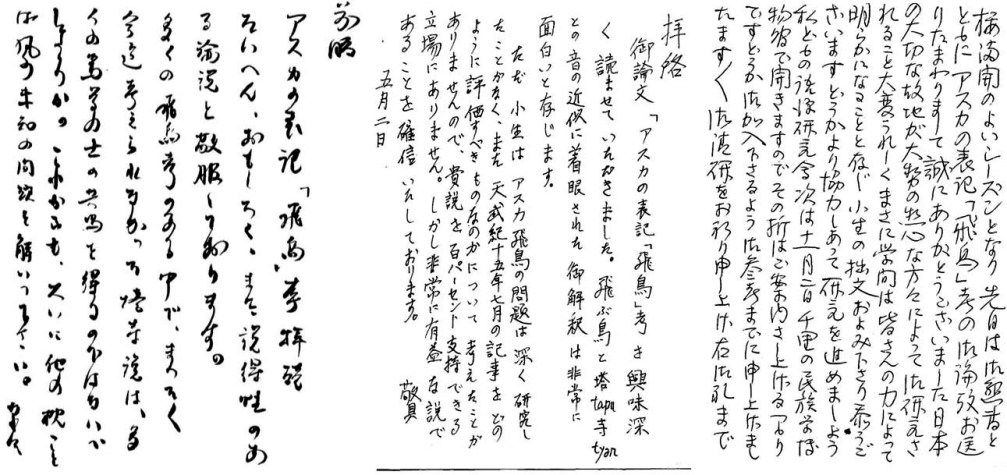 桜満開のよいシーズンとなり 先日はお書と
ともにアスカの表記「飛鳥」考の御論攷お送
りたまわりまして誠にありがとうございました 日本
の大切な故地が大勢の熱心な方々によって御研究さ
れること大変うれしくまさに学問は皆さんの力によって
明らかになることと存じ 小生の拙文およみ下さり恭うご
ざいます どうかより協力しあって研究を進めましょう
私どもの説話研究会次は十一月二日 千里の民族学博
物館で開きますのでその折はご案内さし上げるつもり
ですどうか御加入下さるよう御参考までに申し上げまし
たますます 御清研をお祈り申し上げ 右御礼まで
拝啓
御論文「アスカの表記「飛鳥」考」を興味深
く読ませていただきました。飛ぶ鳥と塔tapu寺tyər
との音の近似に着眼された御解釈は非常に
面白いと存じます。
ただ小生は アスカ飛鳥の問題は深く研究し
たことがなく、また天武紀十五年七月の記事をどの
ように評価すべきものなのかについて考えたことが
ありませんので、貴説を百パーセント支持できる
立場にありません。しかし非常に有益な説で
あることを確信いたしております。 敬具
五月二日
前略
アスカの表記「飛鳥」考拝誦
たいへん、おもしろく、また説得性のあ
る論説と敬服しております。
多くの飛鳥考のある中で、まったく
今迄考えられなかった塔寺説は、多
くの篤学の士の共鳴を得るのではないで
しょうか。これからも、大いに他の枕こと
ば風の未知の問題を解いて下さい。